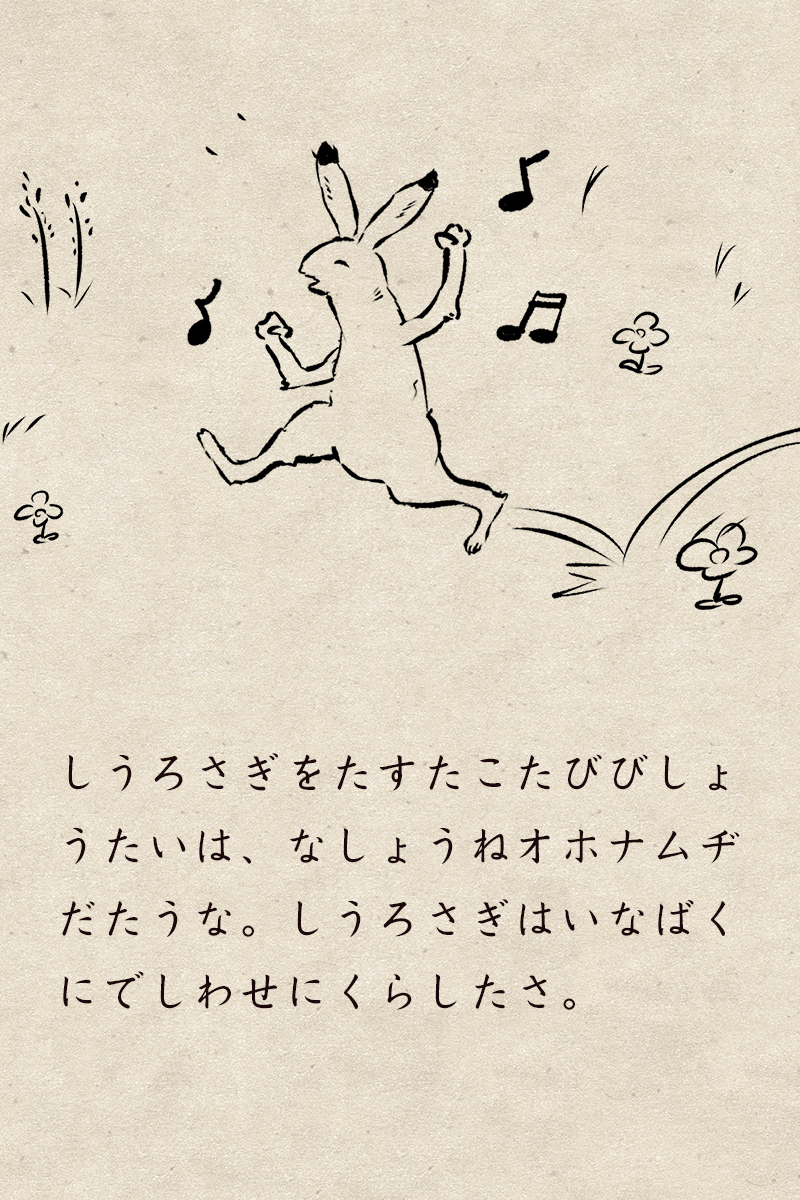 しうろさぎをたすたこたびびしょ
うたいは、なしょうねオホナムヂ
だたうな。しうろさぎはいなばく
にでしわせにくらしたさ。